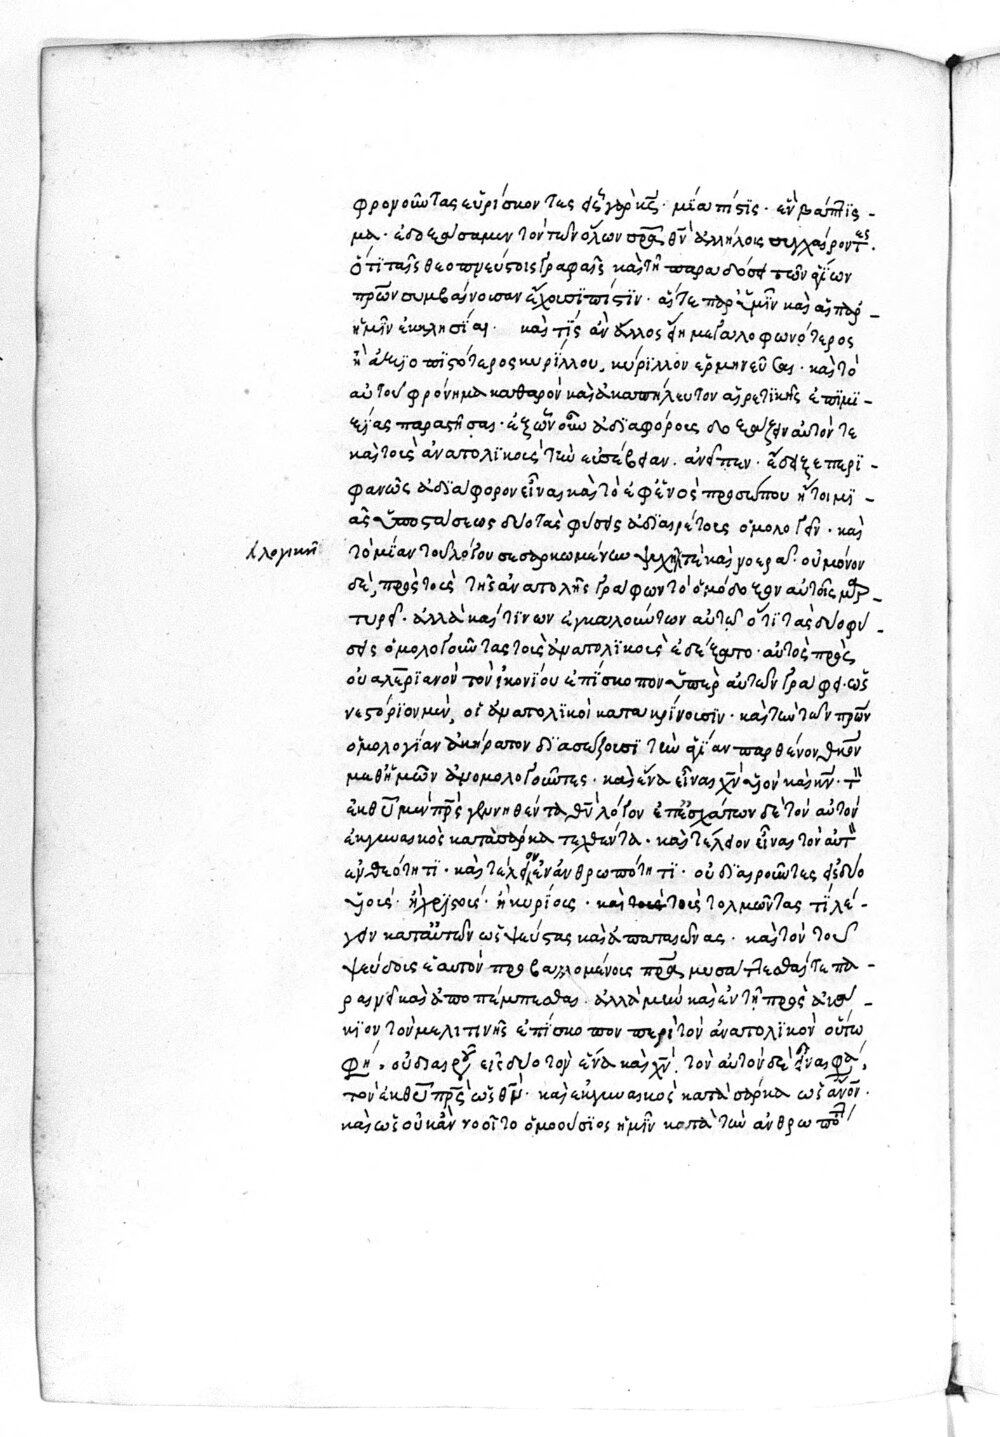 φρονοῦντας εὑρίσκοντες εἷς γὰρ κς· μία πίστις· ἓν βάπτις-
μα· ἐδοξάσαμεν τὸν τῶν ὅλων σρα θν ἀλλήλοις συγχαίροντες.
ὅτι ταῖς θεοπνεύστοις γραφαῖς καὶ τῇ παραδόσει τῶν ἁγίων
πρων συμβαίνουσαν ἔχουσι πίστιν· αἵτε παρ' ὑμῖν καὶ αἱ παρ'
ἡμῖν ἐκκλησίαι· καὶ τίς ἂν ἄλλος εἴη μεγαλοφωνότερος
ἢ ἀξιοπιστότερος κυρίλλου, κύριλλον ἑρμηνεῦσαι· καὶ τὸ
αὐτοῦ φρόνημα καθαρὸν καὶ ἀκαπήλευτον αἱρετικῆς ἐπιμι-
ξίας παραστῆσαι· ἐξ ὧν οὖν ἀδιαφόροις δοξάζειν αὐτόν τε
καὶ τοὺς ἀνατολικοὺς τὴν εὐσέβειαν. ἀνεῖπεν· ἔδειξε περι-
φανῶς ἀδιάφορον εἶναι καὶ τὸ ἐφ' ἑνὸς προσώπου ἤτοι μι-
ᾶς ὑποστάσεως δύο τὰς φύσεις ἀδιαιρέτους ὁμολογεῖν· καὶ
λογικῆ
τὸ μίαν τοῦ λόγου σεσαρκωμένην ψυχῇ τε καὶ νοερᾷ· οὐ μόνον
δὲ, πρὸς τοὺς τῆς ἀνατολῆς γράφων τὸ ὁμόδοξον αὐτοῖς μαρ-
τυρεῖ· ἀλλὰ καί τινων ἐγκαλούντων αὐτῷ ὅτι τὰς δύο φύ-
σεις ὁμολογοῦντας τοὺς ἀνατολικοὺς ἐδέξατο· αὐτὸς πρὸς
οὐαλεριανὸν τὸν ἰκονίου ἐπίσκοπον ὑπὲρ αὐτῶν γράφει· ὡς
νεστόριον μὲν, οἱ ἀνατολικοὶ κατακρίνουσιν· καὶ τὴν τῶν πρων
ὁμολογίαν ἀκήρατον διασώζουσι τὴν ἁγίαν παρθένον θκον
μεθ' ἡμῶν ἀνομολογοῦντες· καὶ ἕνα εἶναι χν υἱὸν καὶ κν· τ
ἐκ θυ μὲν πρς γεννηθέντα θν λόγον ἐπ' ἐσχάτων δὲ τὸν αὐτὸν
ἐκ γυναικὸς κατὰ σάρκα τεχθέντα· καὶ τέλειον εἶναι τὸν αὐτ
ἐν θεότητι· καὶ τέλειον ἐν ἀνθρωπότητι· οὐ διαιροῦντες εἰς δύο
υἱοὺς· ἢ χριστοὺς· ἢ κυρίους· καὶ τοὺς τοὺς τολμῶντας τι λέ-
γειν κατ' αὐτῶν ὡς ψεύστας καὶ ἀπατεῶνας· καὶ τὸν τοῦ
ψεύδους ἑαυτὸν προβαλλομένους πρα μυσάττεσθαί τε πα-
ραινεῖ καὶ ἀποπέμπεσθαι· ἀλλὰ μὴν καὶ ἐν τῇ πρὸς ἀκά-
κιον τὸν μελιτινῆς ἐπίσκοπον περὶ τῶν ἀνατολικῶν οὕτω
φη· οὐ διαιρου εἰς δύο τὸν ἕνα καὶ χν· τὸν αὐτὸν δὲ εἶναι φα,
τὸν ἐκ θυ πρς ὡς θν· καὶ ἐκ γυναικὸς κατὰ σάρκα ὡς ἀνον·
καὶ ὡς οὐκ ἂν νοοῖτο ὁμοούσιος ἡμῖν κατὰ τὴν ἀνθρωπότ